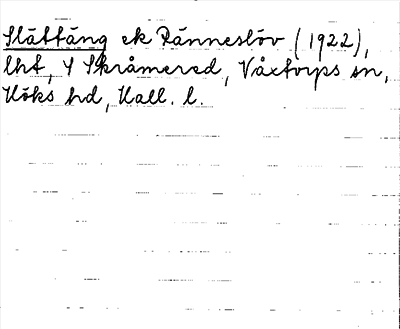 Slättäng ek Ränneslöv (1922),
lht, Y Skråmered, Våxtorps sn,
Höks hd, Hall. l.